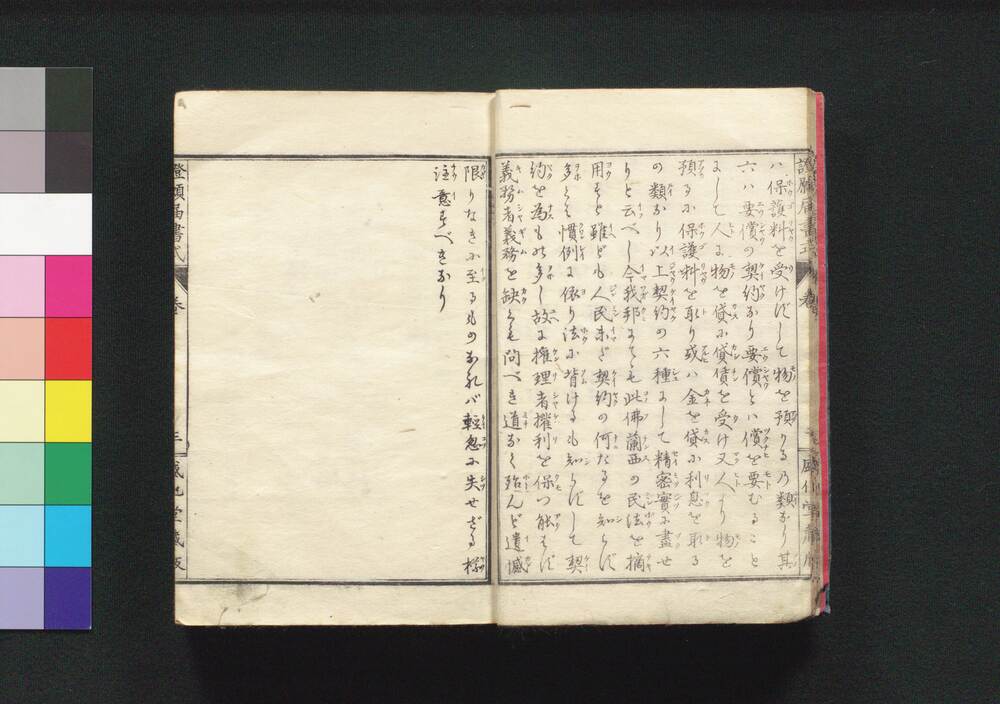 ハ保護料を受けずして物を預りる乃類なり其
六ハ要償の契約なり要償とハ償を要むること
にして人に物を貸に貸賃を受け又人より物を
預るに保護料を取り或ハ金を貸に利息を取る
の類なり以上契約の六種にして精密實に盡せ
りと云べし今我邦にても此佛蘭西の民法を摘
用すと雖ども人民未ど契約の何たるを知らず
多くも慣例に依り法に背けるも知らずして契
約を為もの多し故に權理者權利を保つ能はず
義務者義務を缺くも問べき道なく殆んど遺憾
限りなきに至るものあれバ輕忽に失せざる様
注意すべきなり
證願届書式
卷
三
盛化堂藏版